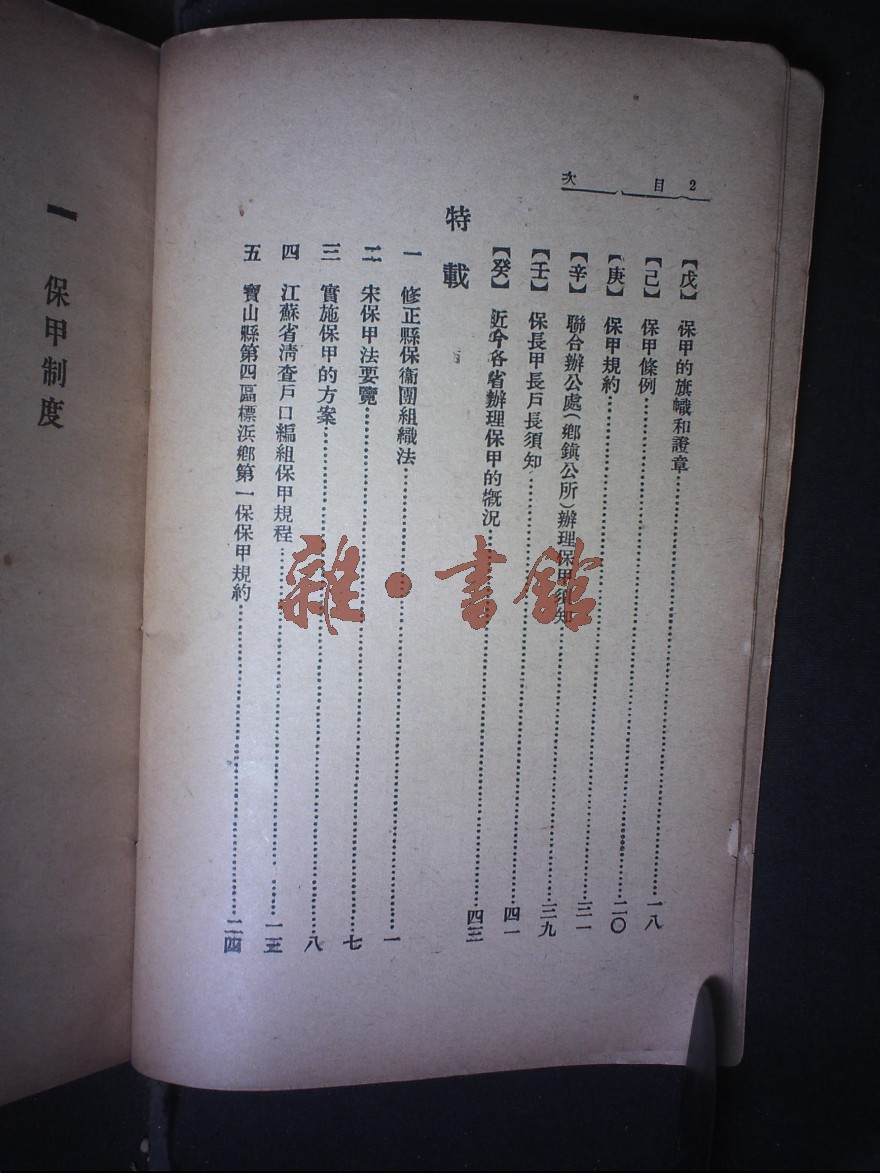 2 目次
【戊】 保甲的旗幟和證章……一八
【己】 保甲條例……二〇
【庚】 保甲規約……三一
【辛】 聯合辦公處（鄉鎮公所）辦理保甲須知……三九
【壬】 保長甲長戶長須知……四一
【癸】 近今各省辦理保甲的概況……四三
特載
一 修正縣保衞團組織法……一
二 宋保甲法要覽……七
三 實施保甲的方案……八
四 江蘇省清查戶口編組保甲規程……一三
五 寶山縣第四區標浜鄉第一保保甲規約……二四
一 保甲制度
雜·書館